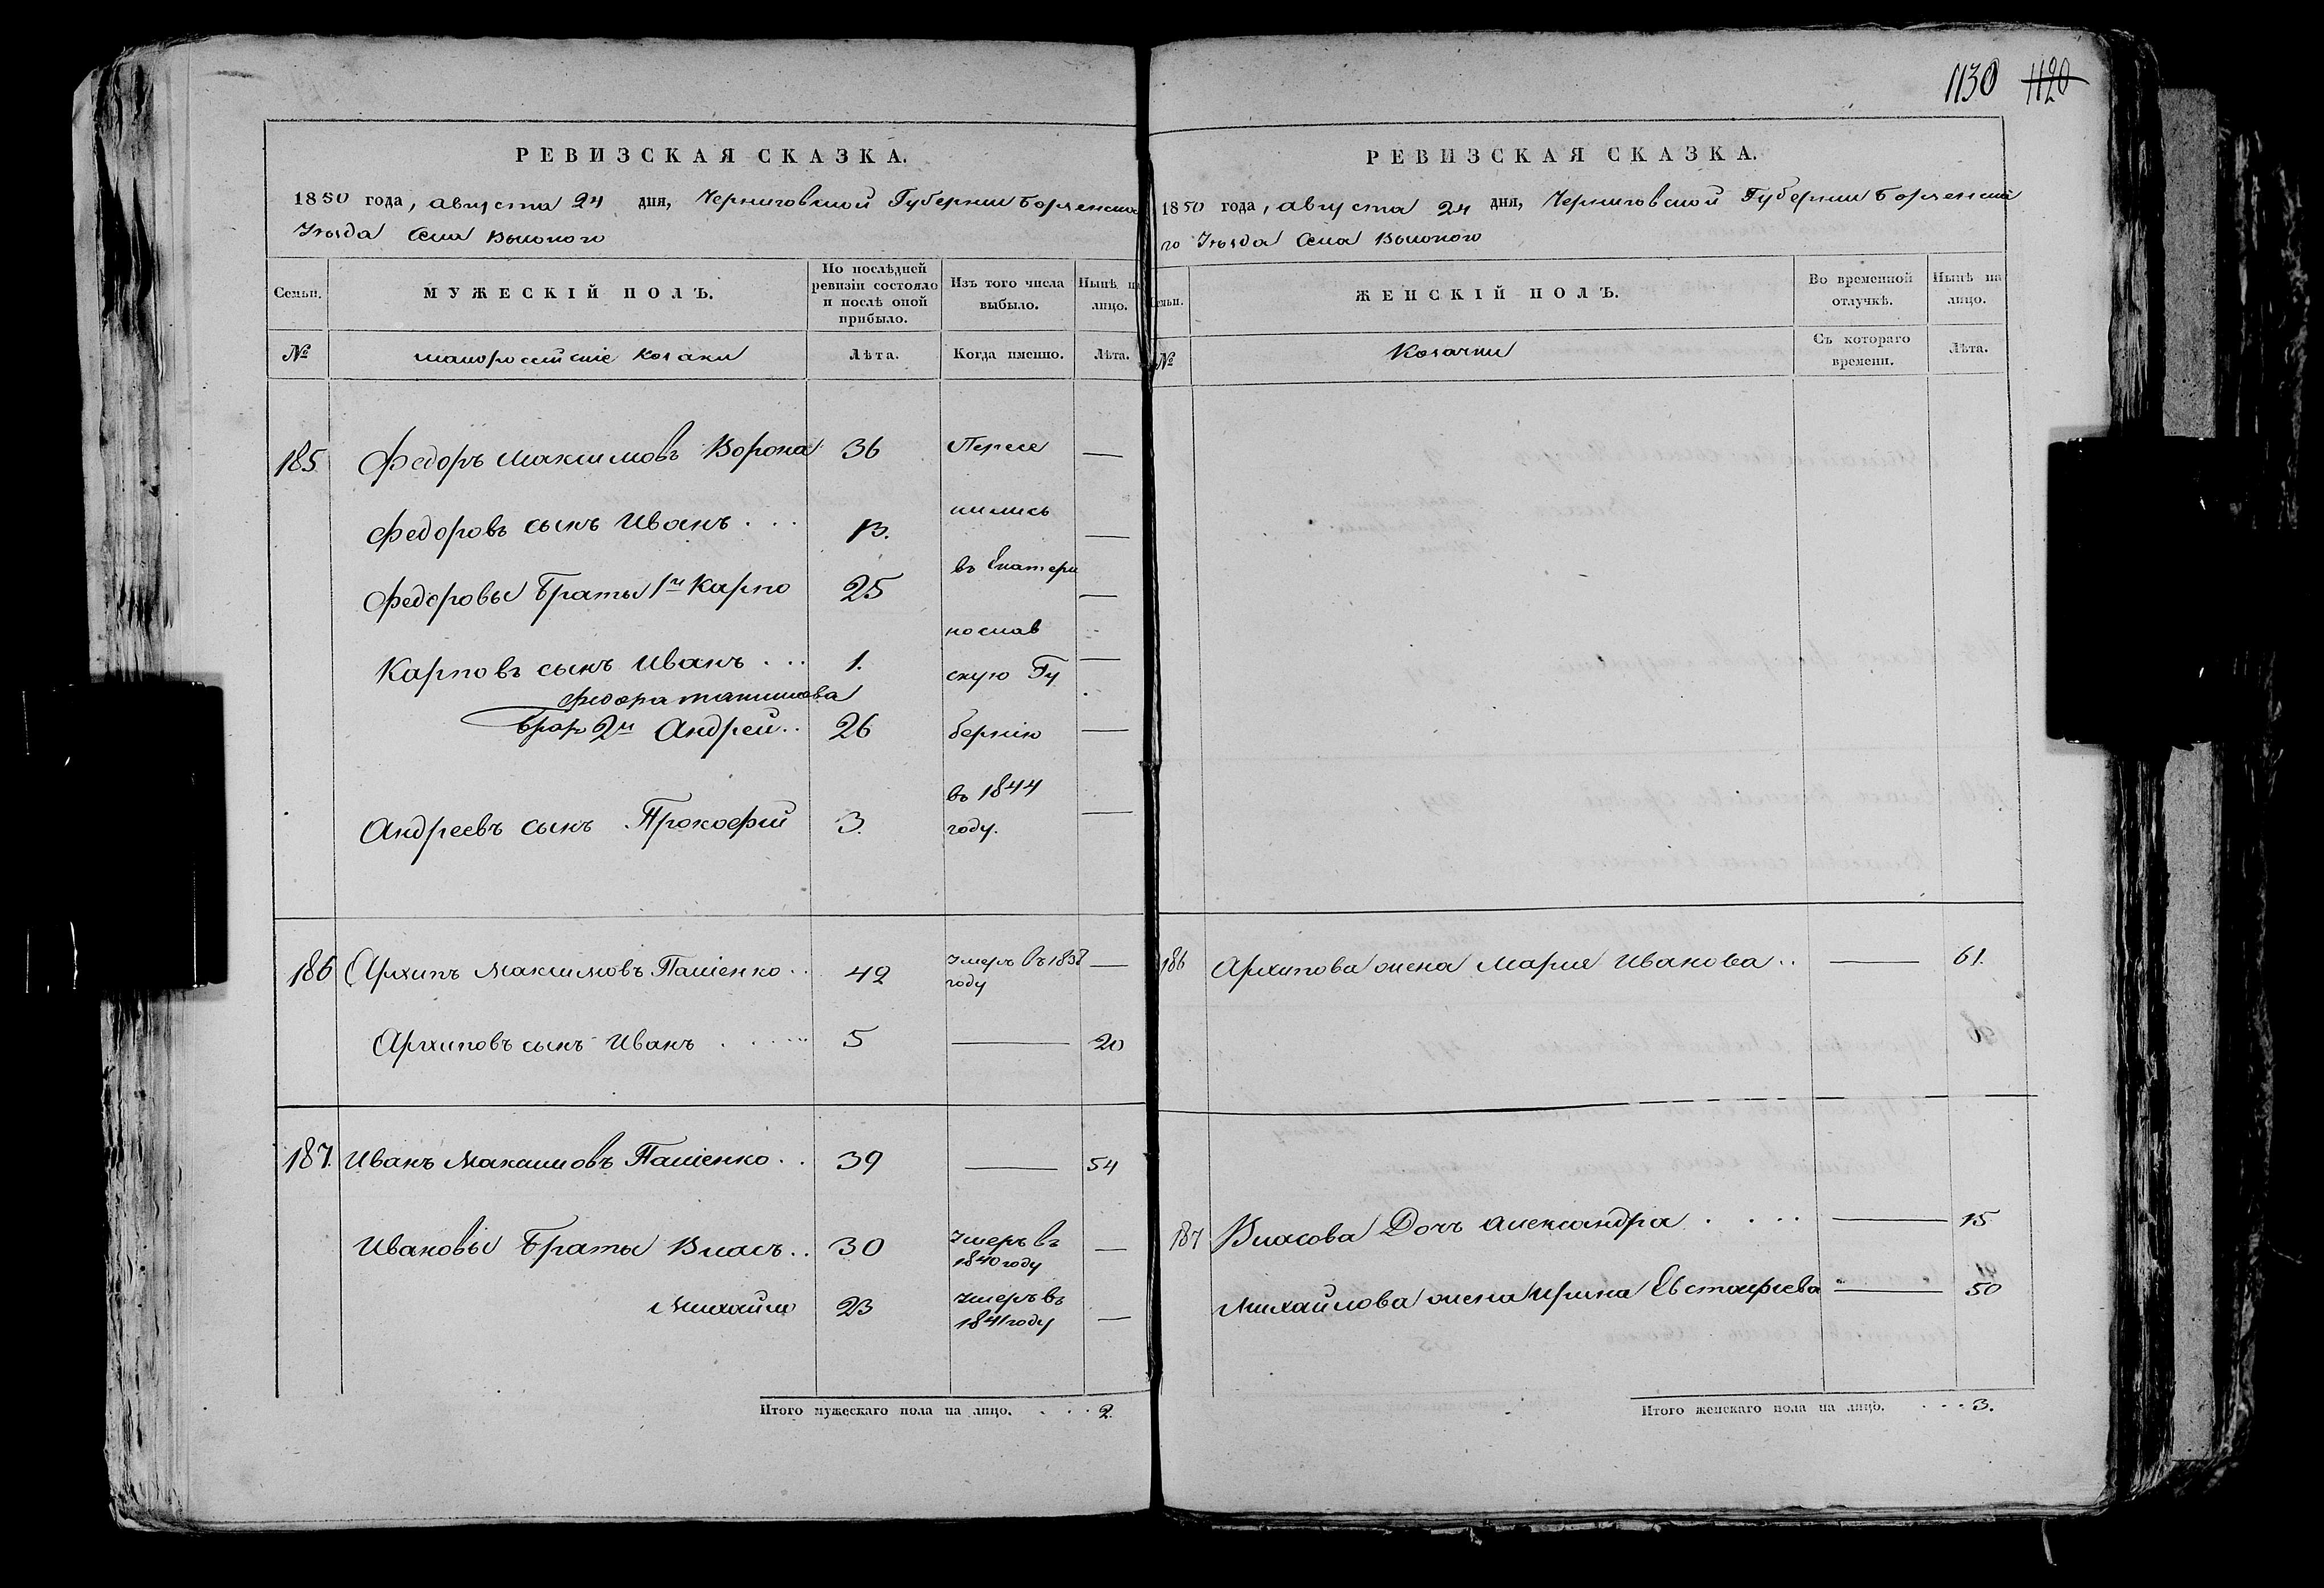 1130 1120
РЕВИЗСКАЯ СКАЗКА.
1850 года, августа 24 дня, Черниговской Губернии Борзенска
Уезда Села Высокого
Семьи.
МУЖЕСКІЙ ПОЛЪ.
По послѣдней
ревизіи состояло
и послѣ оной
прибыло.
Изъ того числа
выбыло.
Нынѣ на
лицо.
№
малороссійскіе козаки
Лѣта.
Когда именно.
Лѣта.
185 Федоръ Максимовъ Ворона 36 Пересе —
Федоровъ сынъ Иванъ . . . 13. лились —
въ Екатери
Федоровы Браты 1й Карпо 25 —
нослав
Карповъ сынъ Иванъ . . . 1. —
скую Гу
Федора Максимова
Братъ 2й Андрей . . 26 бернію —
въ 1844
Андреевъ сынъ Прокофій 3. году. —
186 Архипъ Максимовъ 42 Умеръ въ 1838 —
году
Архиповъ сынъ Иванъ . . . . . 5 — 20
187. Иванъ Максимовъ 39 — 54
Ивановы Браты Власъ . . 30 Умеръ въ —
1840 году
Михайло 23 Умеръ въ —
1841 году
Итого мужескаго пола на лицо. . . . 2.
РЕВИЗСКАЯ СКАЗКА.
1850 года, августа 24 дня, Черниговской Губернии Борзенска
го Уезда Села Высокого
Семьи.
ЖЕНСКІЙ ПОЛЪ.
Во временной
отлучкѣ.
Нынѣ на
лицо.
№
Козачки
Съ котораго
времени.
Лѣта.
186 Архипова жена Марія Иванова . . — 61.
187 Власова Дочь Александра . . . . — 15
Михайлова жена Ирина Евстафіева — 50
Итого женскаго пола на лицо. . . . 3.